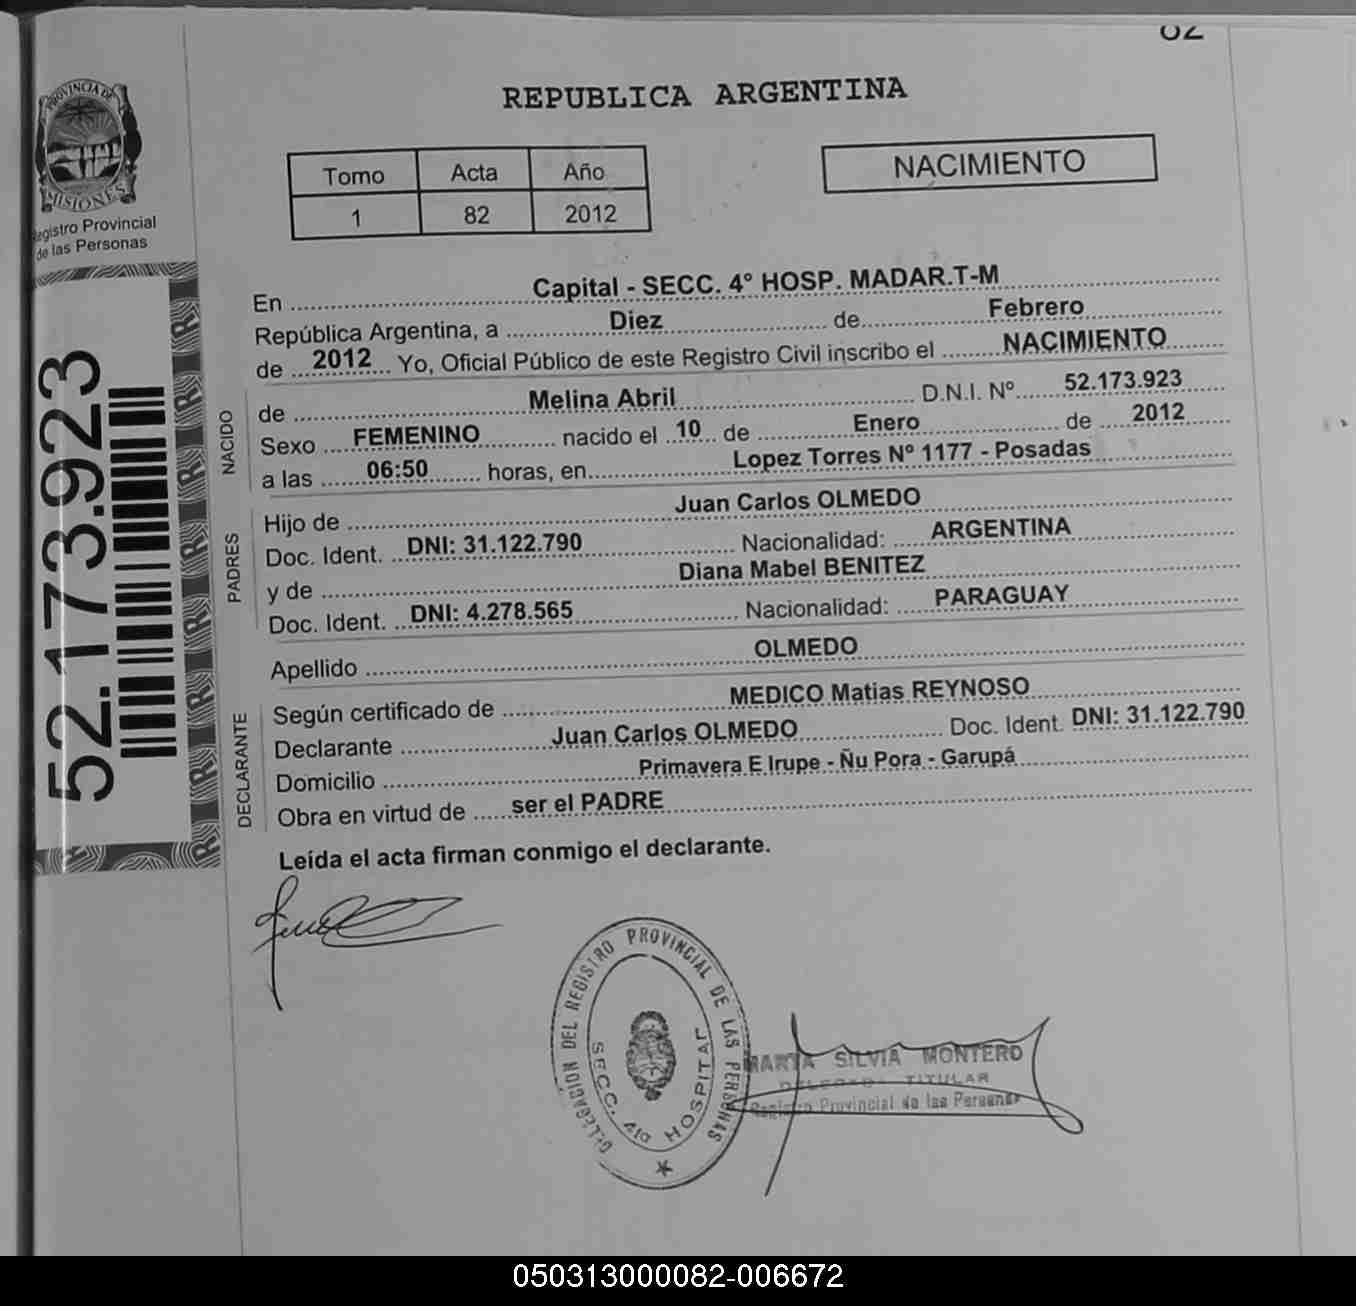 82
PROVINCIA DE
MISIONES
Registro Provincial
de las Personas
52.173.923
REPUBLICA ARGENTINA
Tomo Acta Año
1 82 2012
NACIMIENTO
En Capital - SECC. 4° HOSP. MADAR.T-M
República Argentina, a Diez de Febrero
de 2012 Yo, Oficial Público de este Registro Civil inscribo el NACIMIENTO
NACIDO
de Melina Abril D.N.I. Nº 52.173.923
Sexo FEMENINO nacido el 10 de Enero de 2012
a las 06:50 horas, en Lopez Torres Nº 1177 - Posadas
PADRES
Hijo de Juan Carlos OLMEDO
Doc. Ident. DNI: 31.122.790 Nacionalidad: ARGENTINA
y de Diana Mabel BENITEZ
Doc. Ident. DNI: 4.278.565 Nacionalidad: PARAGUAY
Apellido OLMEDO
DECLARANTE
Según certificado de MEDICO Matias REYNOSO
Declarante Juan Carlos OLMEDO Doc. Ident. DNI: 31.122.790
Domicilio Primavera E Irupe - Ñu Pora - Garupá
Obra en virtud de ser el PADRE
Leída el acta firman conmigo el declarante.
DELEGACION DEL REGISTRO PROVINCIAL DE LAS PERSONAS
SECC. 4ta HOSPITAL
MARTA SILVIA MONTERO
DELEGADA TITULAR
Registro Provincial de las Personas
050313000082-006672